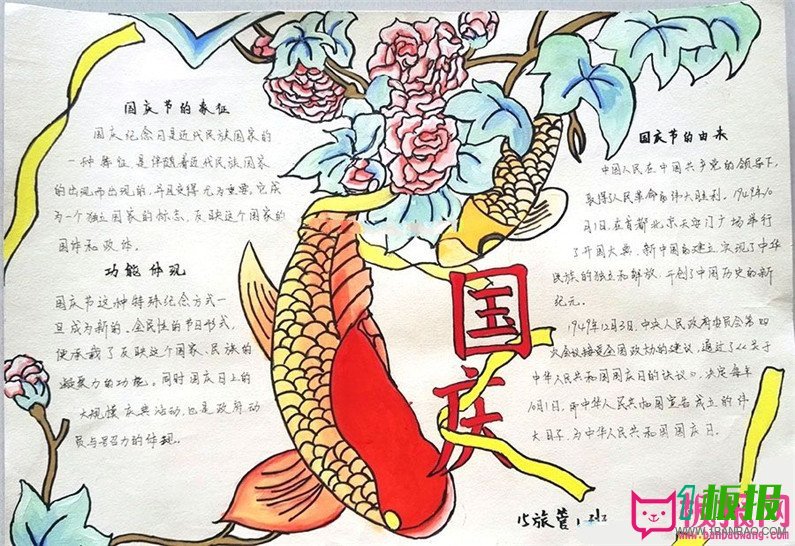 国庆节的象征
国庆纪念日是近代民族国家的
一种特征,是伴随着近代民族国家
的出现而出现的,并且变得尤为重要。它成
为一个独立国家的标志,反映这个国家的
国体和政体。
功能体现
国庆节这种特殊纪念方式一
旦成为新的、全民性的节日形式,
便承载了反映这个国家、民族的
凝聚力的功能。同时国庆日上的
大规模庆典活动,也是政府动
员与号召力的体现。
国庆
国庆节的由来
中国人民在中国共产党的领导下,
取得了人民革命的伟大胜利。1949年10
月1日,在首都北京天安门广场举行
了开国大典。新中国的建立,实现了中华
民族的独立和解放,开创了中国历史的新
纪元。
1949年12月3日,中央人民政府委员会第四
次会议接受全国政协的建议,通过了《关于
中华人民共和国国庆日的决议》,决定每年
10月1日,即中华人民共和国宣告成立的伟
大日子,为中华人民共和国国庆日。
15旅管1班
板报网
www.banbaowang.com
板报
WWW.1BANBAO.COM